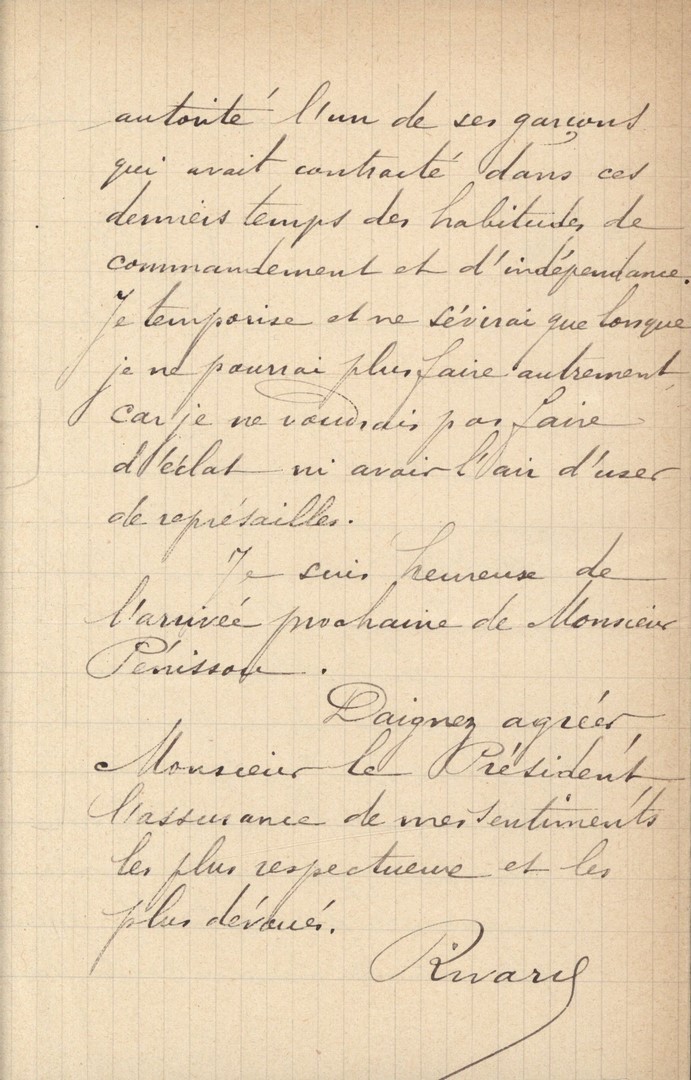 autorité l'un de ses garçons
qui avait contracté dans ces
derniers temps des habitudes de
commandement et d'indépendance.
Je temporise et ne sévirai que lorsque
je ne pourrai plus faire autrement,
car je ne voudrais pas faire
d'éclat ni avoir l'air d'user
de représailles.
Je suis heureuse de
l'arrivée prochaine de Monsieur
Pénisson.
Daignez agréer,
Monsieur le Président,
l'assurance de mes sentiments
les plus respectueux et les
plus dévoués.